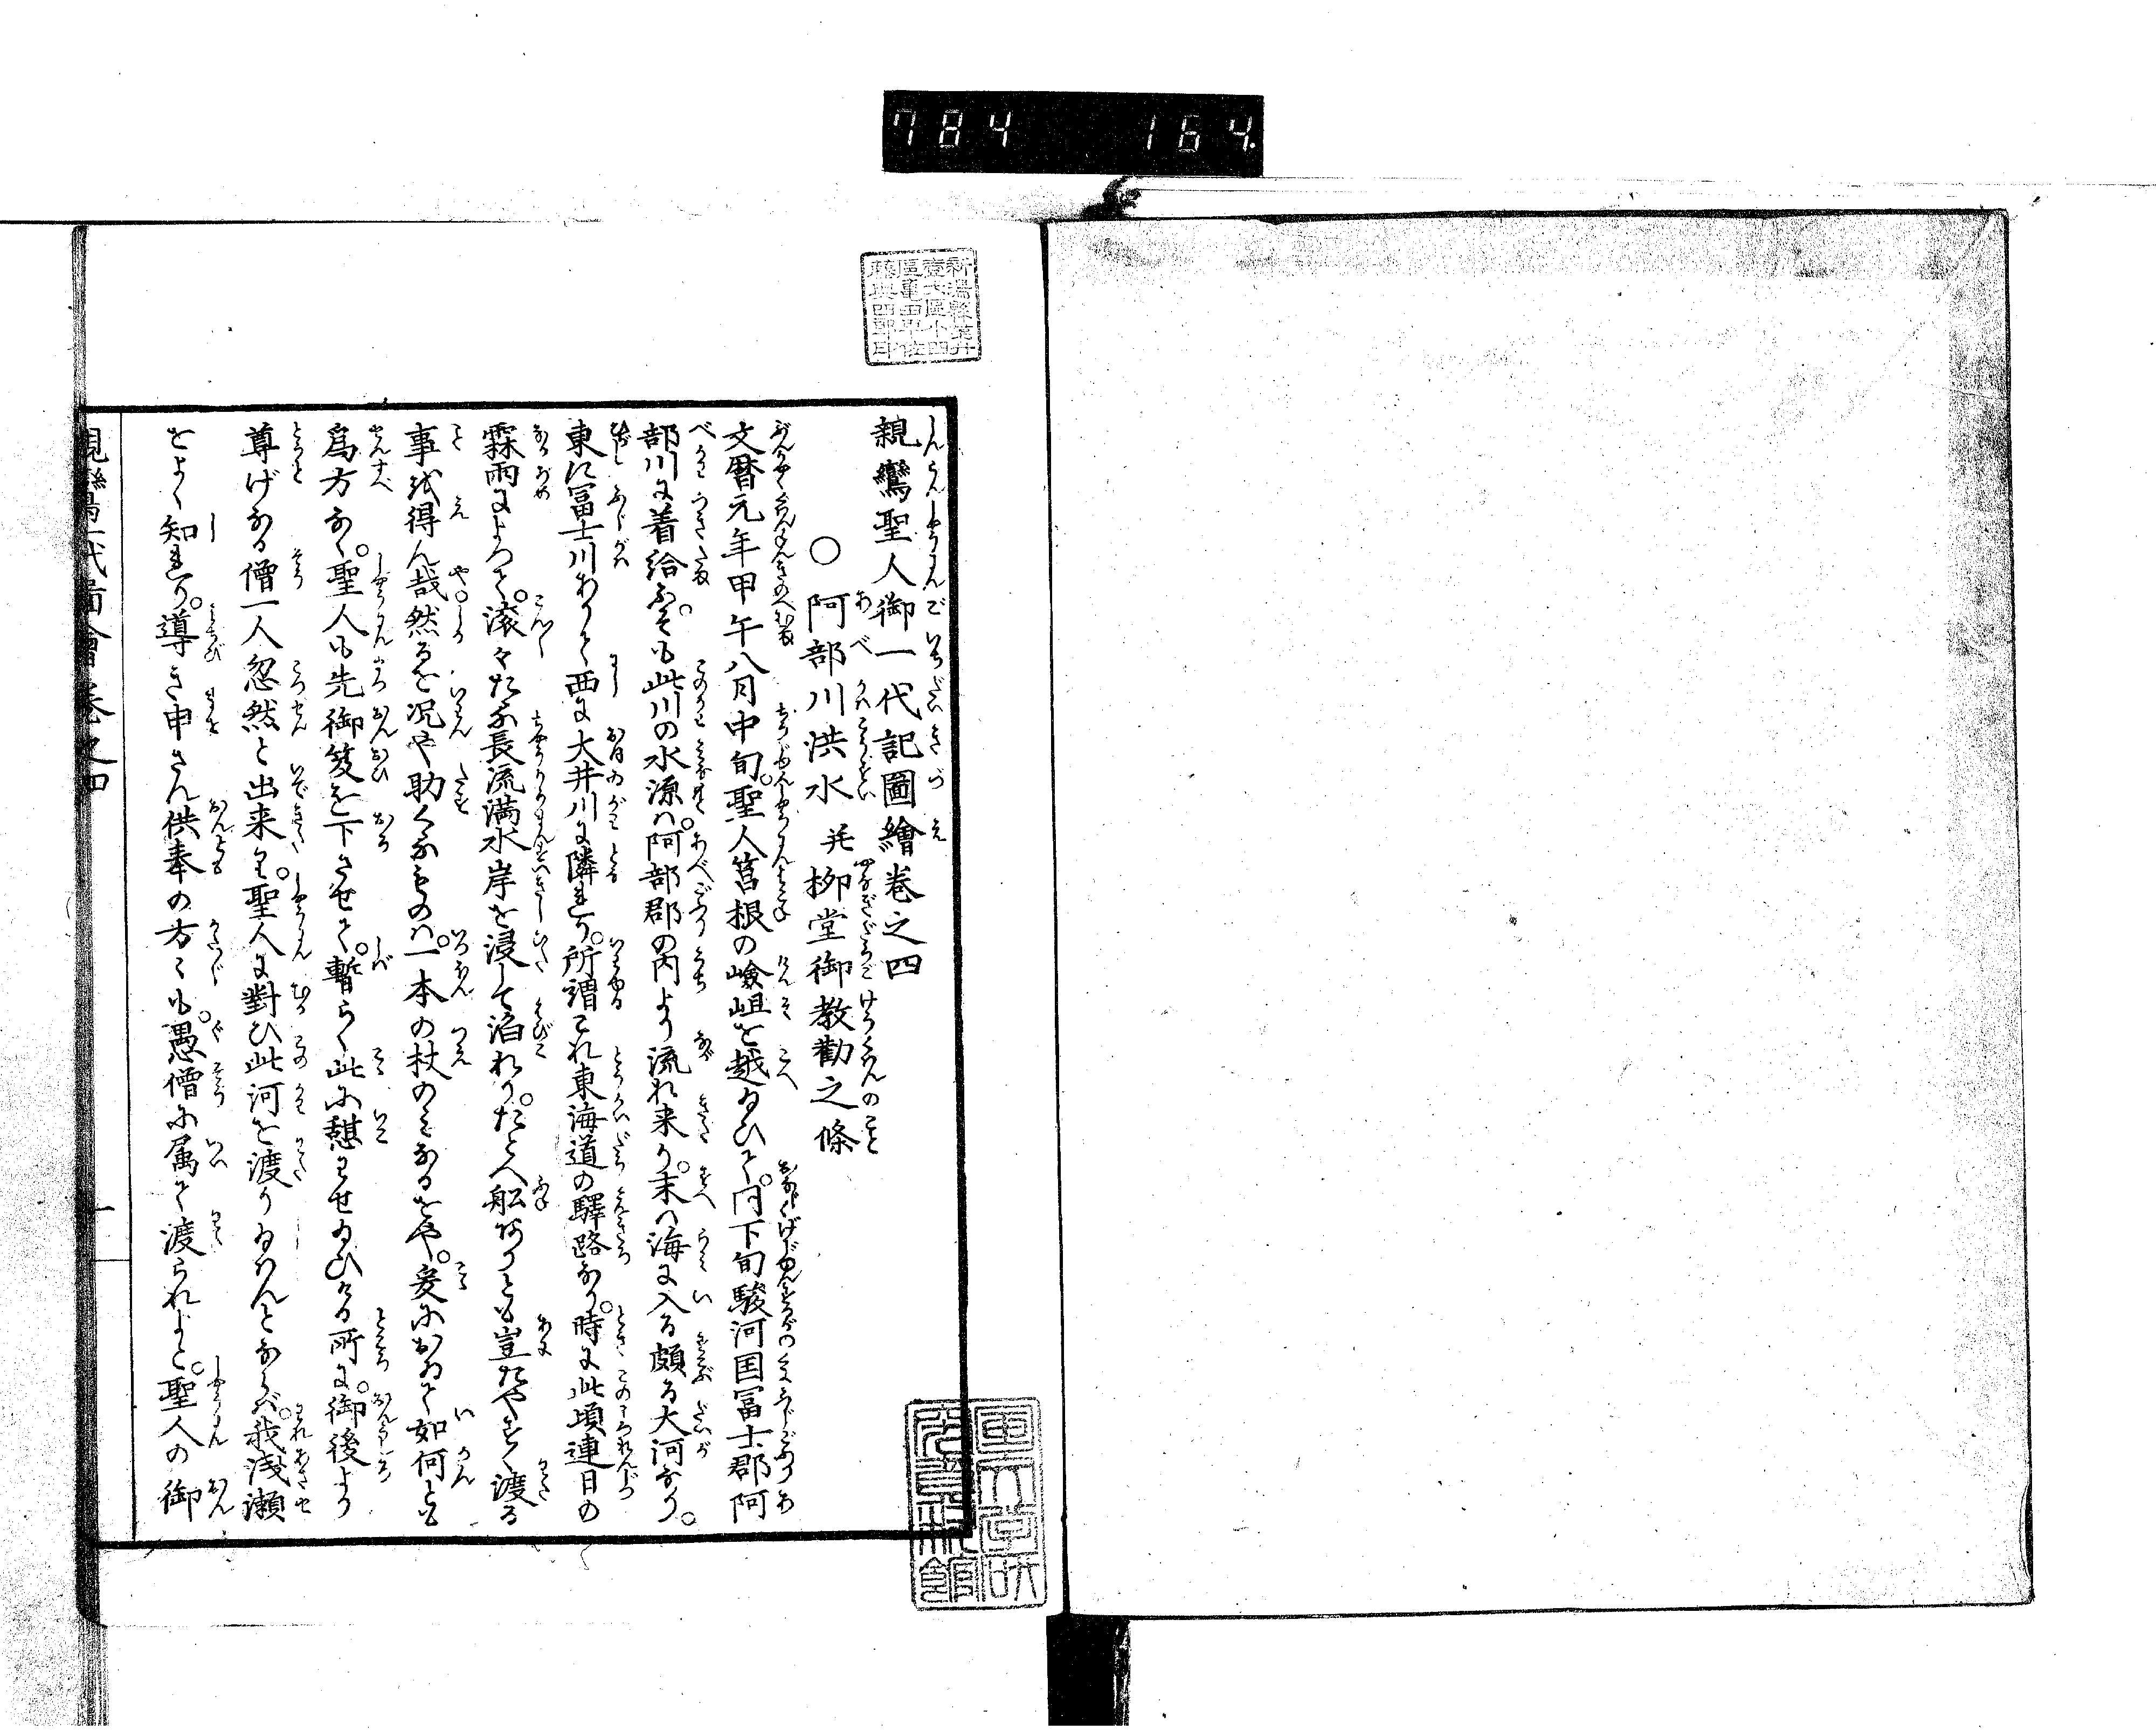 784 164.
親鸞聖人御一代記圖繪巻之四
○阿部川洪水 并 栁堂御教勸之條
文暦元年甲午八月中旬。聖人筥根の嶮岨を越給ひて。同下旬駿河国冨士郡阿
部川に着給ふ。そも此川の水源は。阿部郡の内より流れ来り。末は海に入る頗る大河なり。
東に冨士川ありて西に大井川に隣れり。所謂これ東海道の驛路なり。時に此頃連日の
霖雨によつて。滚々たる長流満水岸を浸して滔れり。たとへ舩ありとも豈たやすく渡る
事を得ん哉然るを况や助くるものは。一本の杖のみなるをや。爰において如何とも
為方なく。聖人も先御笈を下させて。暫らく此に憩わせ給ひける所に。御後より
尊げなる僧一人忽然と出来り。聖人に對ひ此河を渡り給はんとならば。我浅瀬
をよく知れり。導き申さん供奉の方々も。愚僧に属て渡られよと。聖人の御
親鸞一代圖會 巻之四 一